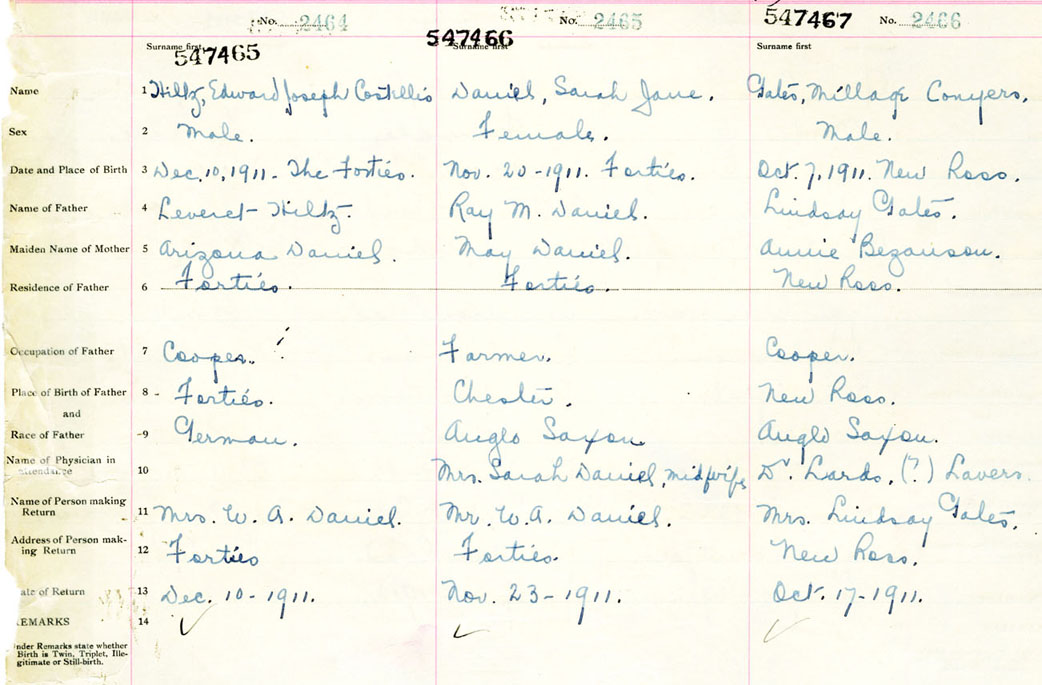 No. 2464 No. 2465 547467 No. 2466
Surname first 547465 547466 Surname first Surname first
Name 1 Hiltz, Edward Joseph Costillio Daniel, Sarah Jane. Gates, Millage Conyers.
Sex 2 Male. Female. Male.
Date and Place of Birth 3 Dec. 10, 1911. The Forties. Nov. 20-1911. Forties. Oct. 7, 1911. New Ross.
Name of Father 4 Leveret Hiltz. Ray M. Daniel. Lindsay Gates.
Maiden Name of Mother 5 Arizona Daniel. May Daniel. Annie Bezanson.
Residence of Father 6 Forties. Forties. New Ross.
Occupation of Father 7 Cooper. Farmer. Cooper.
Place of Birth of Father 8 Forties. Chester. New Ross.
and
Race of Father 9 German. Anglo Saxon Anglo Saxon.
Name of Physician in
attendance 10 Mrs. Sarah Daniel, midwife Dr. Lards, (?) Lavers.
Name of Person making
Return 11 Mrs. W. A. Daniel. Mr. W. A. Daniel. Mrs. Lindsay Gates.
Address of Person mak-
ing Return 12 Forties Forties. New Ross.
ate of Return 13 Dec. 10-1911. Nov. 23-1911. Oct. 17-1911.
EMARKS 14
nder Remarks state whether
Birth is Twin, Triplet, Ille-
gitimate or Still-birth.